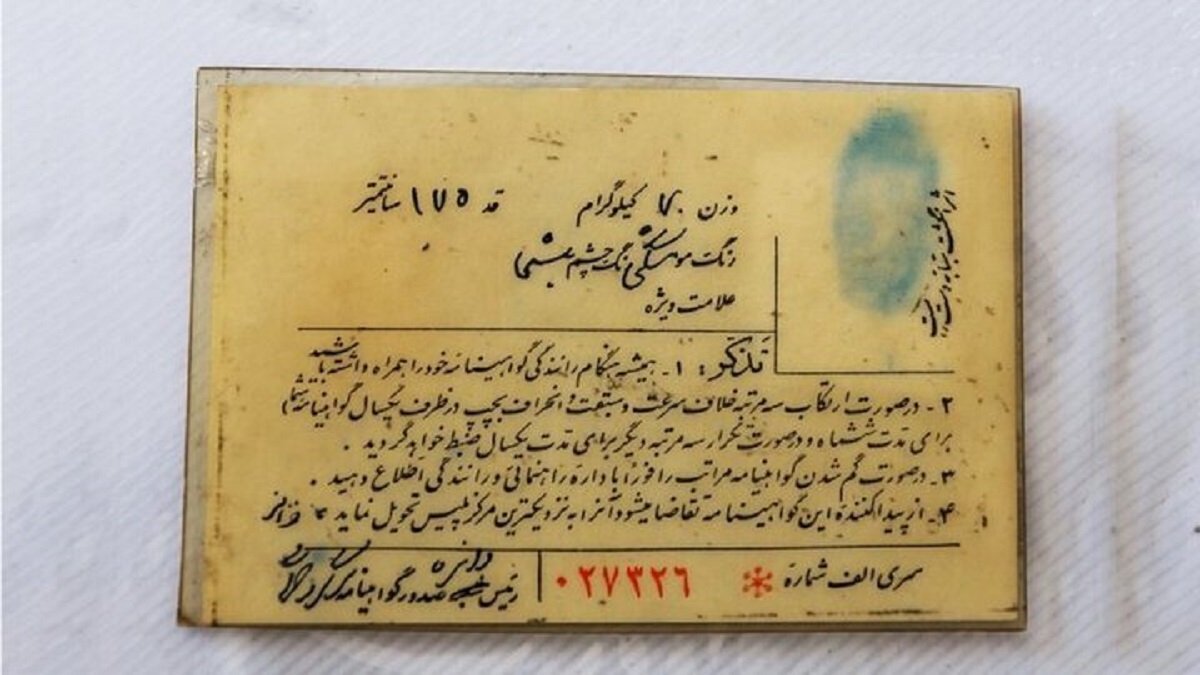 وزن ۷۰ کیلوگرام قد ۱۷۵ سانتیمتر
رنگ مو مشکی رنگ چشم میشی
علامت ویژه
اثر انگشت سبابه دست راست
تذکر: ۱- همیشه هنگام رانندگی گواهینامه خود را همراه داشته باشید
۲- در صورت ارتکاب سه مرتبه خلاف سرعت و سبقت و انحراف بچپ در ظرف یکسال گواهینامه شما
برای مدت ششماه و در صورت تکرار سه مرتبه دیگر برای مدت یکسال ضبط خواهد گردید .
۳- در صورت گم شدن گواهینامه مراتب را فوراً باداره راهنمائی و رانندگی اطلاع دهید .
۴- از پیدا کننده این گواهینامه تقاضا میشود آنرا به نزدیکترین مرکز پلیس تحویل نماید
سری الف شماره * ۰۲۷۳۲٦
رئیس صدور گواهینامه